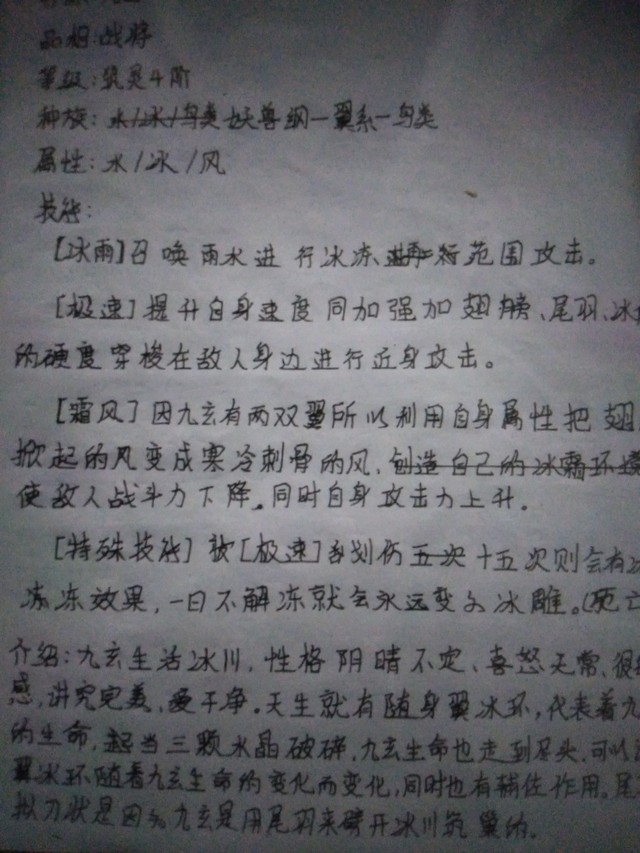 品相:战将
等级:筑灵4阶
种族:水/冰/鸟类 妖兽纲一翼系一鸟类
属性:水/冰/风
技能:
【冰雨】召唤雨水进行冰冻再行范围攻击。
【极速】提升自身速度同加强加翅膀、尾羽、冰
的硬度穿梭在敌人身边进行近身攻击。
【霜风】因九玄有两双翼所以利用自身属性把翅
掀起的风变成寒冷刺骨的风,创造自己的冰霜环境
使敌人战斗力下降。同时自身攻击力上升。
【特殊技能】被【极速】刮划伤五次十五次则会有
冻冻效果,一日不解冻就会永远变为冰雕。(死亡
介绍:九玄生活冰川,性格阴晴不定、喜怒无常、很
感,讲究完美,爱干净。天生就有随身翼冰环,代表着九
的生命,起当三颗水晶破碎,九玄生命也走到尽头,可以
翼冰环随着九玄生命的变化而变化,同时也有辅佐作用。尾
拟刀状是因为九玄是用尾羽来劈开冰川筑巢的.